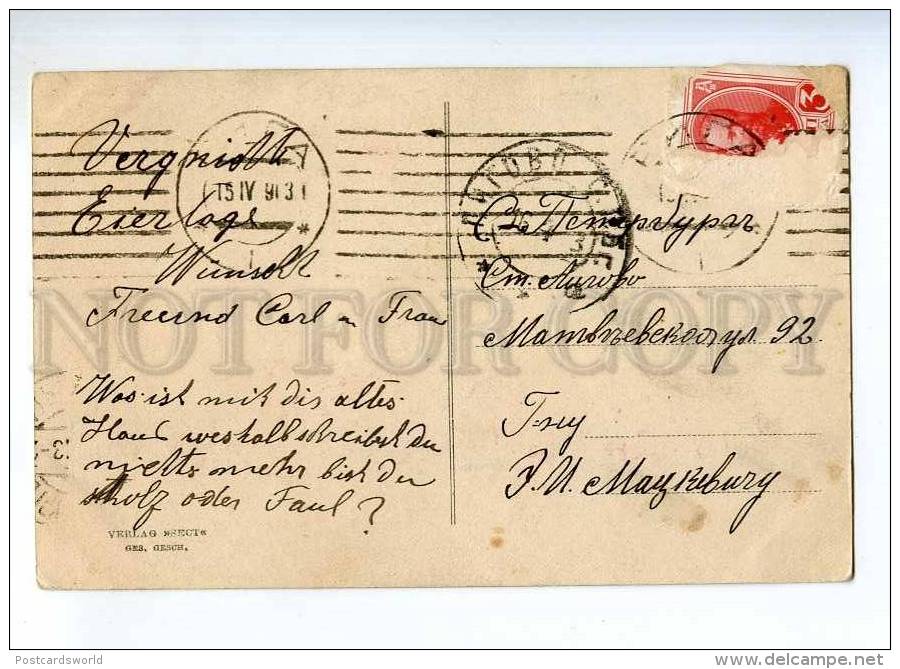 Vergnigte
Eier tage
Wünscht
Freund Carl u Frau
Was ist mit dir altes
Haus weshalb schreibst du
nichts mehr bist du
stolz oder Faul?
VERLAG »SECT«
GES. GESCH.
15 IV
ЛИГОВО С.П.Б.
С. Петербургъ
Ст. Лигово
Матвѣевская ул 92
Г-ну
Э. И. Мацкевичу
NOT FOR COPY
Postcardsworld
delcampe.net